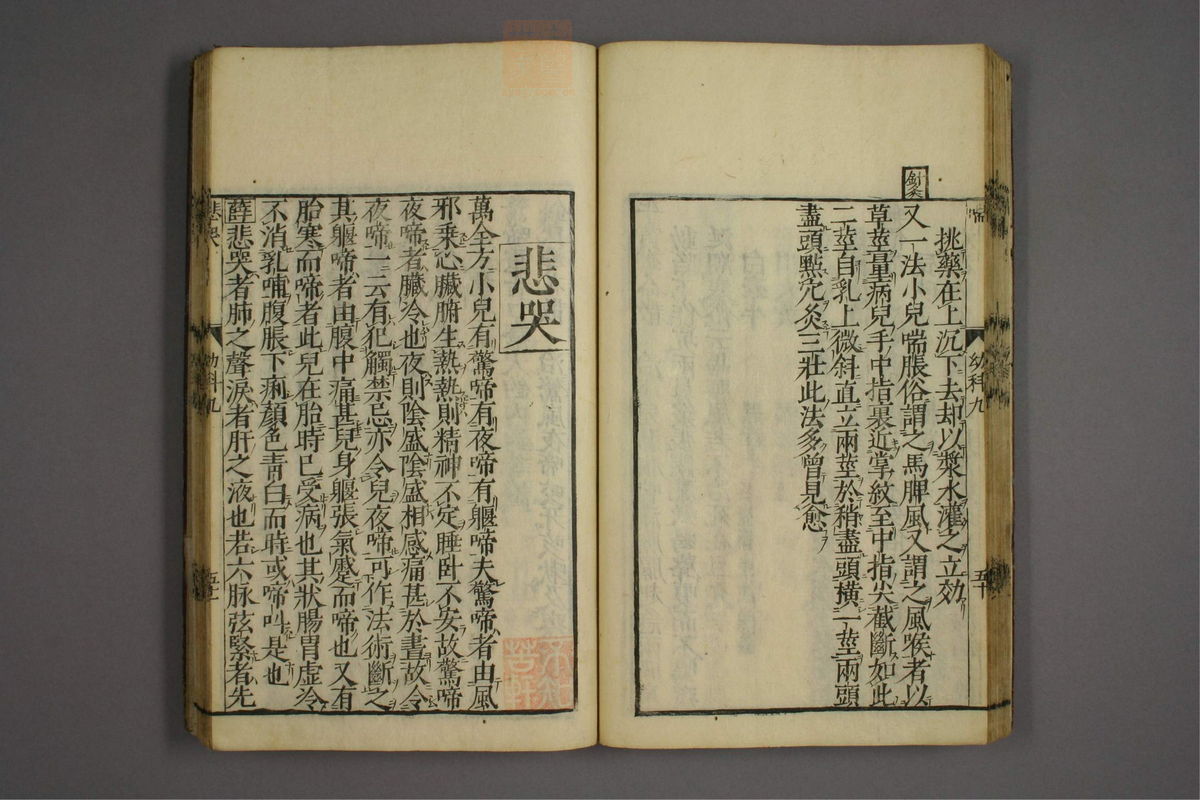 挑藥在上沉下去却以漿水灌之立効
針灸
又一法小兒喘脹俗謂之馬脾風又謂之風喉者以
草莖量病兒手中指裏近掌紋至中指尖截斷如此
二莖自乳上微斜直立兩莖於稍盡頭橫一莖兩頭
盡頭點穴灸三壯此法多曾見愈
幼科九
五十
悲哭
萬全方小兒有驚啼有夜啼有軀啼夫驚啼者由風
邪乘心臟腑生熱熱則精神不定睡臥不安故驚啼
夜啼者臟冷也夜則陰盛陰盛相感痛甚於晝故令
夜啼一云有犯觸禁忌亦令兒夜啼可作法術斷之
其軀啼者由腹中痛甚兒身軀張氣蹙而啼也又有
胎寒而啼者此兒在胎時已受病也其狀腸胃虛冷
不消乳哺腹脹下痢顏色青白而時或啼叫是也
薛悲哭者肺之聲淚者肝之液也若六脉弦緊者先
悲哭
幼科九